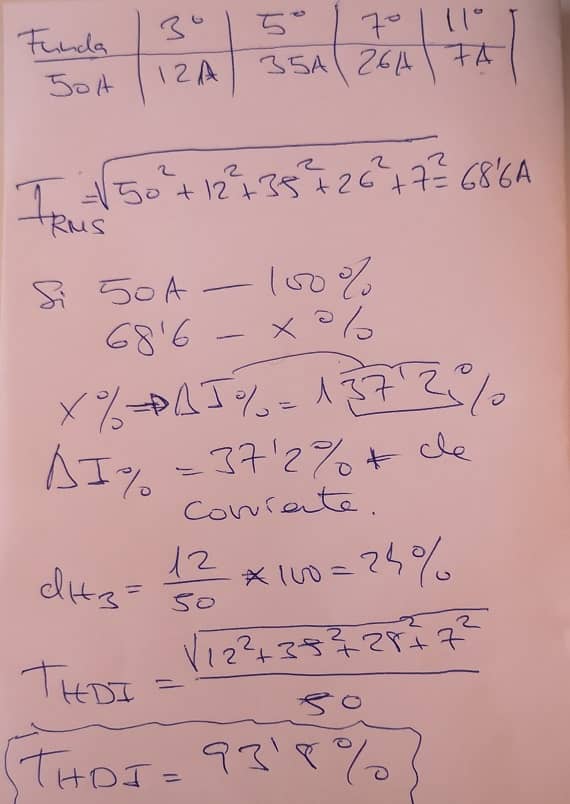 Funda | 3º | 5º | 7º | 11º
50A | 12A | 35A | 26A | 7A
I_RMS = √50² + 12² + 35² + 26² + 7² = 68'6A
Si 50A — 100%
68'6 — x%
x% ⇒ ΔI% = 137'2%
ΔI% = 37'2% + de
corriente.
dH3 = 12/50 * 100 = 24%
THDI = √12² + 35² + 28² + 7² / 50
THDI = 93'8%